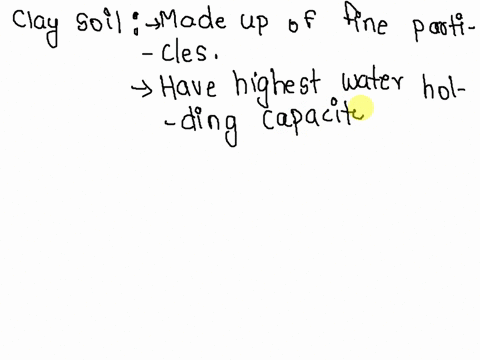 Clay soil: → Made up of fine parti-
- cles.
→ Have highest water hol-
- ding capacit